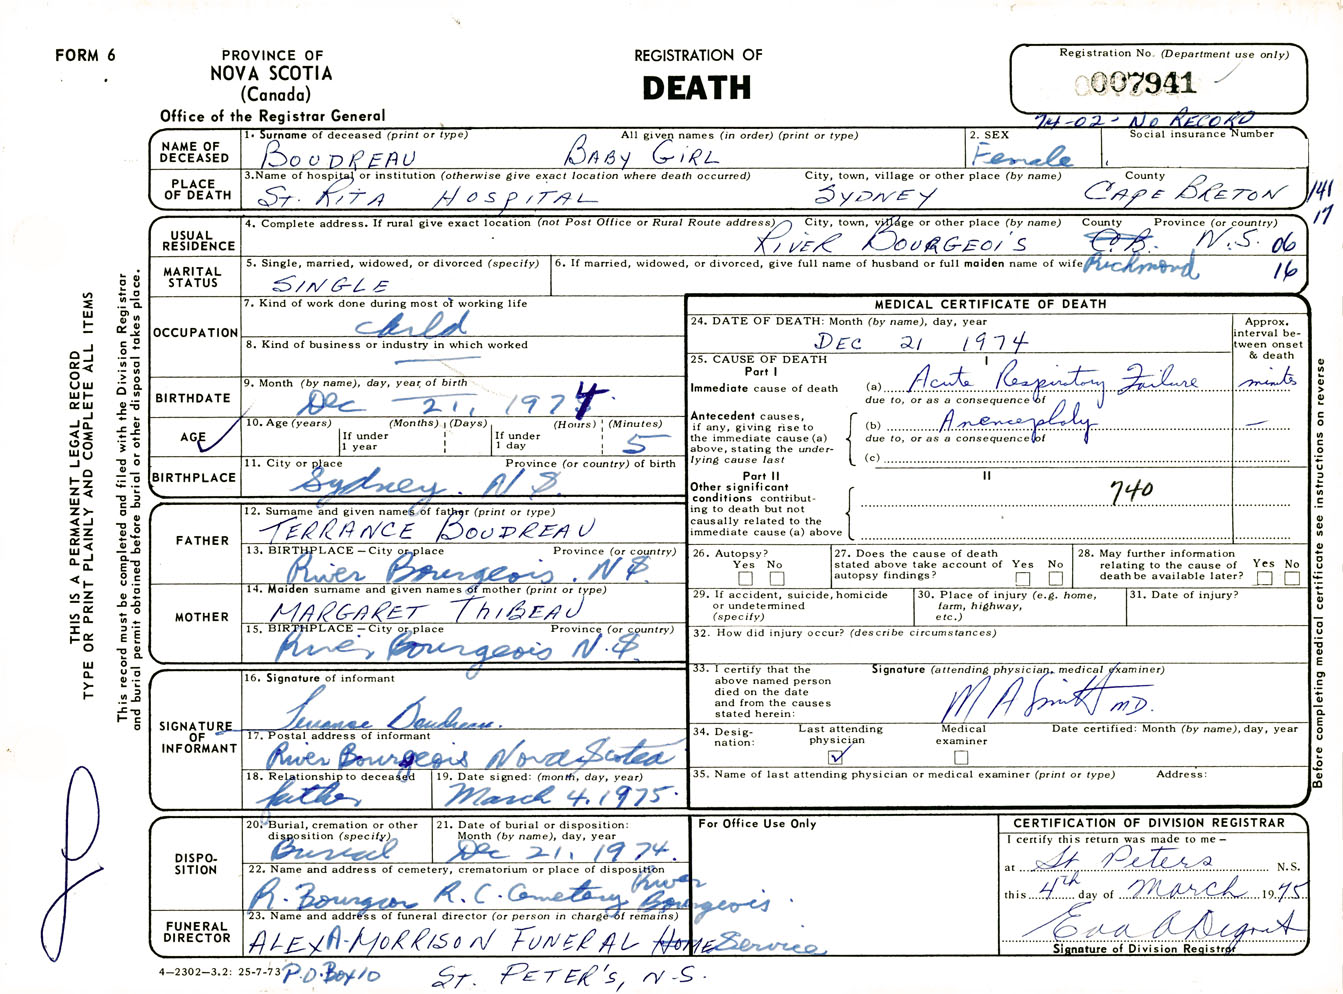 FORM 6
PROVINCE OF
NOVA SCOTIA
(Canada)
Office of the Registrar General
REGISTRATION OF
DEATH
Registration No. (Department use only)
007941
74-02- NO RECORD
NAME OF DECEASED
1. Surname of deceased (print or type) All given names (in order) (print or type) 2. SEX Social insurance Number
BOUDREAU BABY GIRL Female
PLACE OF DEATH
3.Name of hospital or institution (otherwise give exact location where death occurred) City, town, village or other place (by name) County
ST. RITA HOSPITAL SYDNEY CAPE BRETON 141
17
USUAL RESIDENCE
4. Complete address. If rural give exact location (not Post Office or Rural Route address) City, town, village or other place (by name) County Province (or country)
RIVER BOURGEOIS C.B. N.S. 06
Richmond 16
MARITAL STATUS
5. Single, married, widowed, or divorced (specify) 6. If married, widowed, or divorced, give full name of husband or full maiden name of wife
SINGLE
OCCUPATION
7. Kind of work done during most of working life
child
8. Kind of business or industry in which worked
BIRTHDATE
9. Month (by name), day, year, of birth
Dec 21, 1974
AGE
10. Age (years) If under 1 year (Months) (Days) If under 1 day (Hours) (Minutes)
5
BIRTHPLACE
11. City or place Province (or country) of birth
Sydney. N S.
FATHER
12. Surname and given names of father (print or type)
TERRANCE BOUDREAU
13. BIRTHPLACE – City or place Province (or country)
River Bourgeois. N S.
MOTHER
14. Maiden surname and given names of mother (print or type)
MARGARET THIBEAU
15. BIRTHPLACE – City or place Province (or country)
River Bourgeois N.S.
SIGNATURE OF INFORMANT
16. Signature of informant
Terrance Boudreau.
17. Postal address of informant
River Bourgeois Nova Scotia
18. Relationship to deceased 19. Date signed: (month, day, year)
father March 4, 1975.
DISPO-SITION
20. Burial, cremation or other disposition (specify) 21. Date of burial or disposition: Month (by name), day, year
Burial Dec 21, 1974.
22. Name and address of cemetery, crematorium or place of disposition
R. Bourgeois R.C. Cemetery River Bourgeois.
FUNERAL DIRECTOR
23. Name and address of funeral director (or person in charge of remains)
ALEX A. MORRISON FUNERAL HOME Service
P.O. Box 10 ST. PETER'S, N-S.
4–2302–3.2: 25-7-73
MEDICAL CERTIFICATE OF DEATH
24. DATE OF DEATH: Month (by name), day, year
DEC 21 1974
Approx. interval be-tween onset & death
25. CAUSE OF DEATH
Part I I
Immediate cause of death (a) Acute Respiratory Failure minutes
due to, or as a consequence of
Antecedent causes, if any, giving rise to the immediate cause (a) above, stating the under-lying cause last
(b) Anencephaly —
due to, or as a consequence of
(c)
Part II II
Other significant conditions contribut-ing to death but not causally related to the immediate cause (a) above
740
26. Autopsy? Yes No
27. Does the cause of death stated above take account of autopsy findings? Yes No
28. May further information relating to the cause of death be available later? Yes No
29. If accident, suicide, homicide or undetermined (specify)
30. Place of injury (e.g. home, farm, highway, etc.)
31. Date of injury?
32. How did injury occur? (describe circumstances)
33. I certify that the above named person died on the date and from the causes stated herein:
Signature (attending physician, medical examiner)
M A Smith MD.
34. Desig-nation: Last attending physician Medical examiner Date certified: Month (by name), day, year
35. Name of last attending physician or medical examiner (print or type) Address:
For Office Use Only
CERTIFICATION OF DIVISION REGISTRAR
I certify this return was made to me –
at St Peters N.S.
this 4th day of March 1975
Signature of Division Registrar
THIS IS A PERMANENT LEGAL RECORD
TYPE OR PRINT PLAINLY AND COMPLETE ALL ITEMS
This record must be completed and filed with the Division Registrar
and burial permit obtained before burial or other disposal takes place.
Before completing medical certificate see instructions on reverse